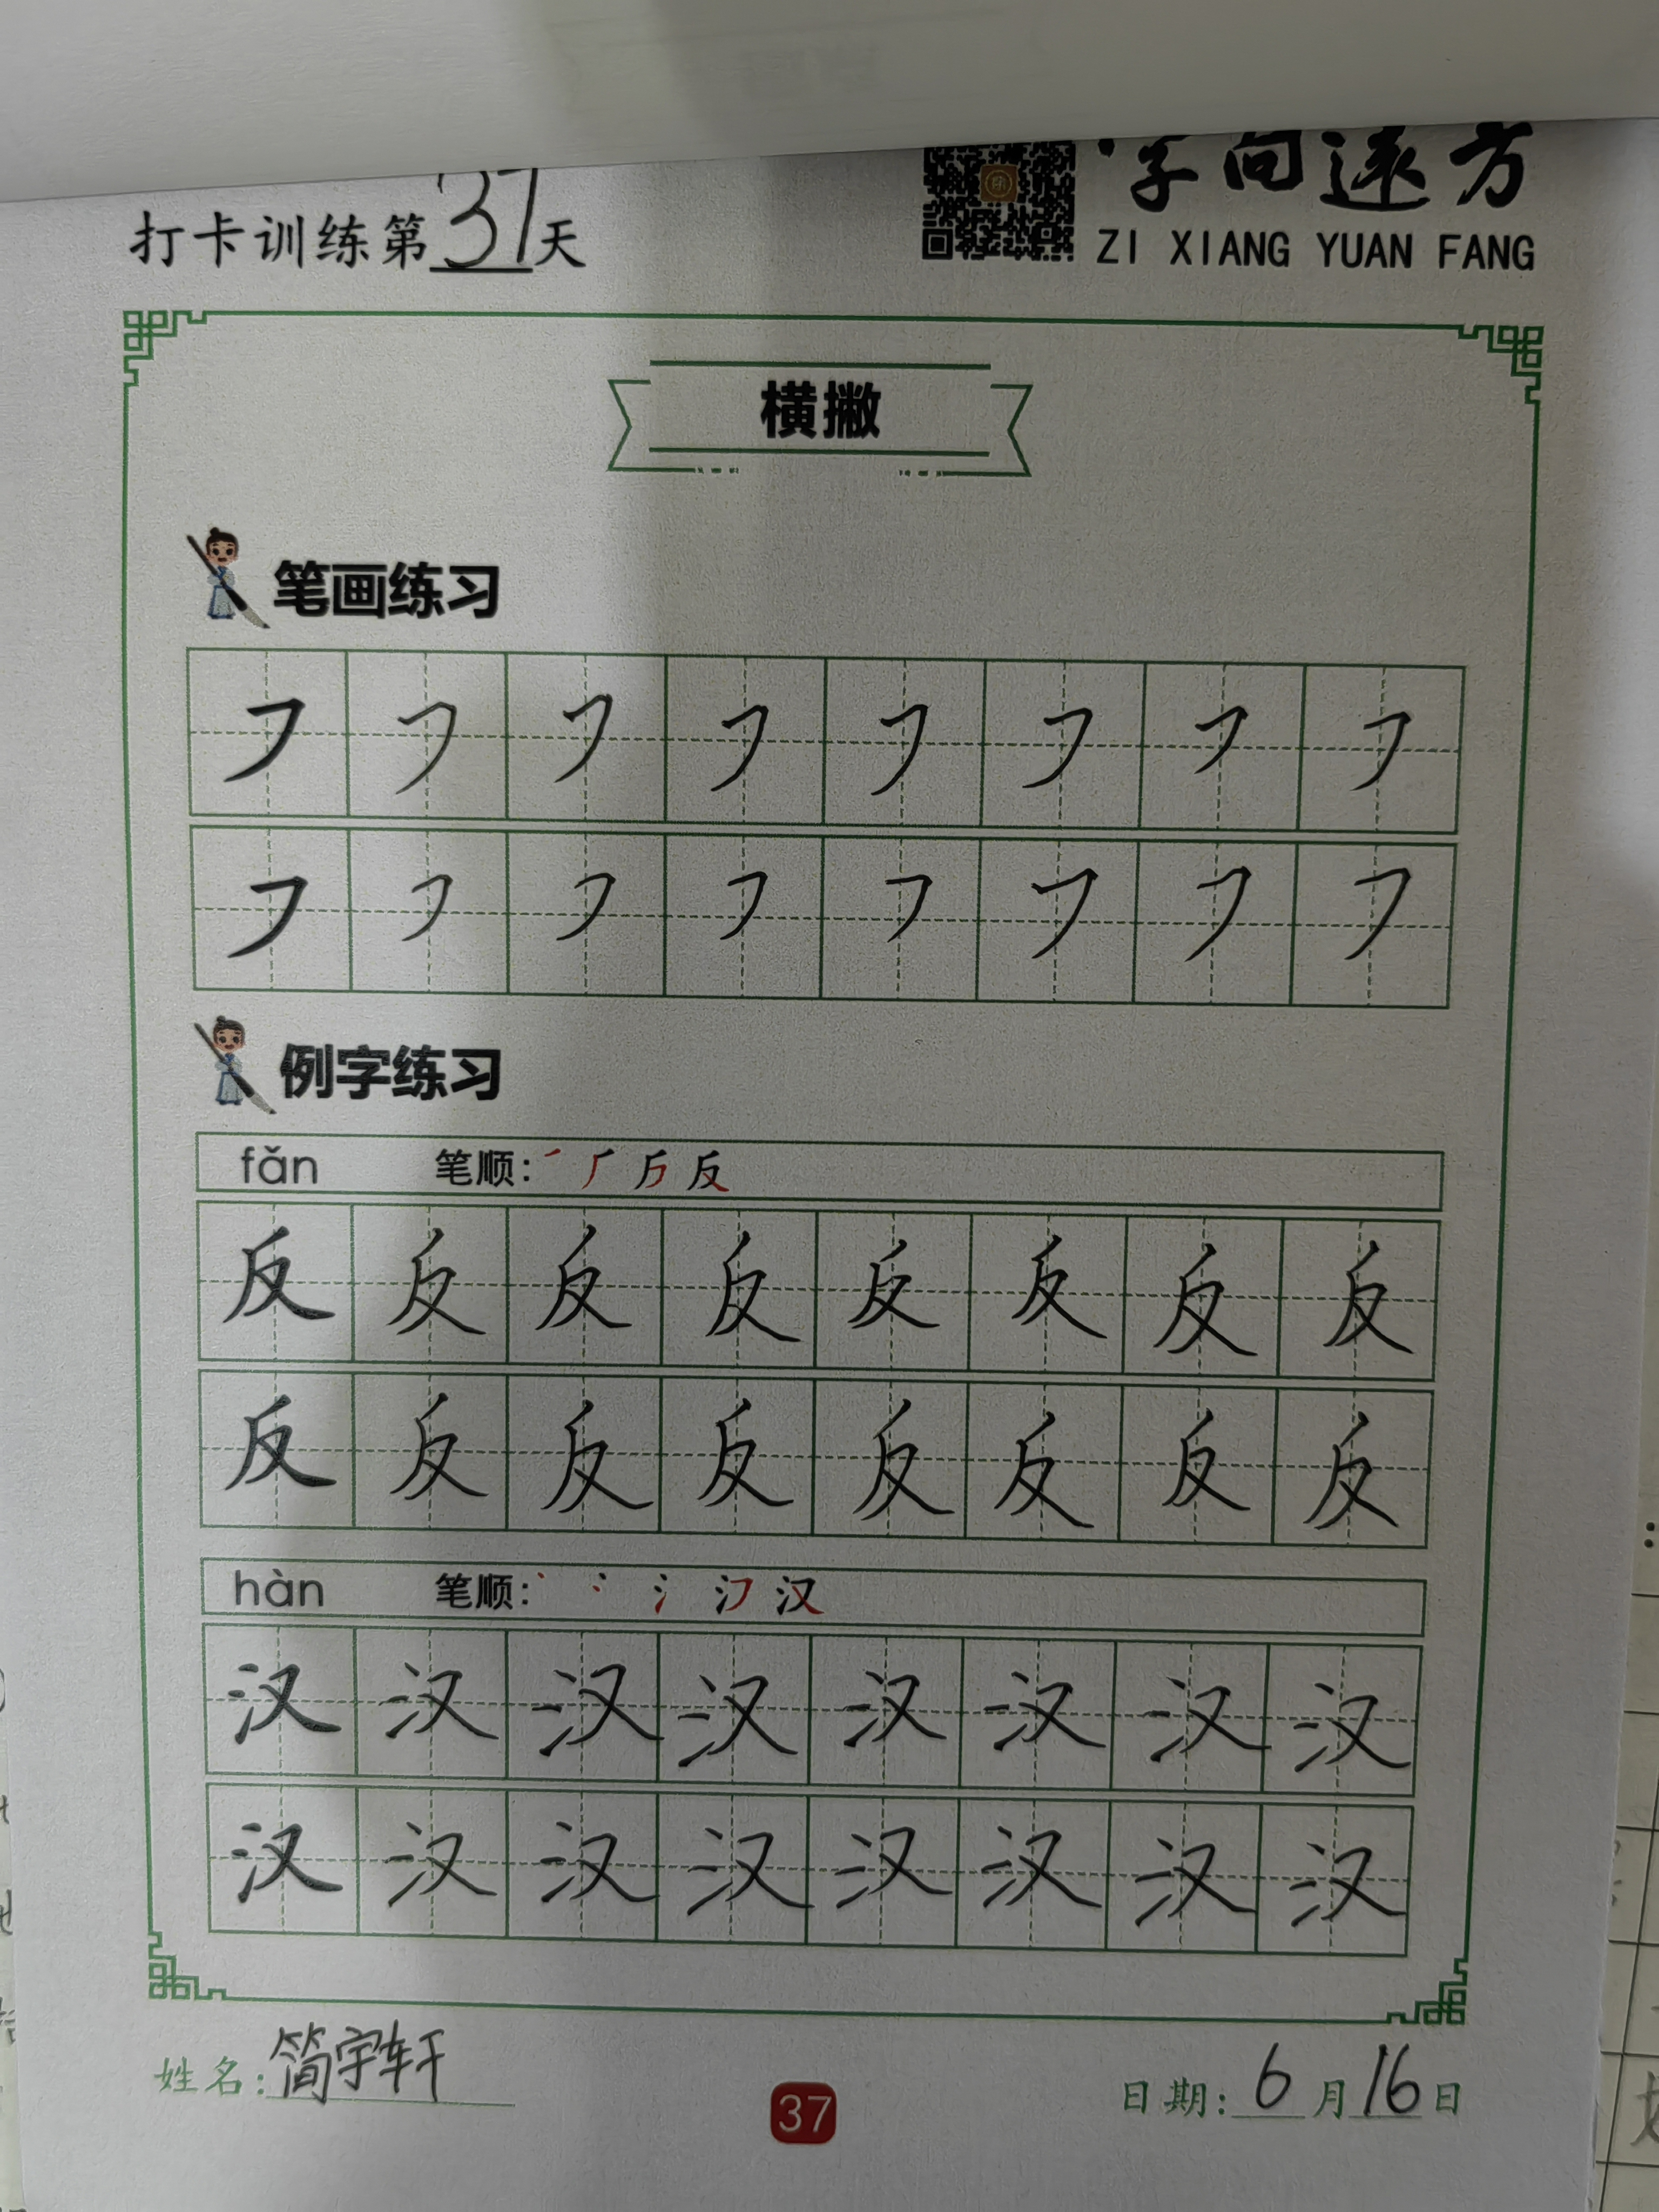 字向远方
打卡训练第37天
ZI XIANG YUAN FANG
横撇
笔画练习
㇇ ㇇ ㇇ ㇇ ㇇ ㇇ ㇇ ㇇
㇇ ㇇ ㇇ ㇇ ㇇ ㇇ ㇇ ㇇
例字练习
fǎn 笔顺: 反
反 反 反 反 反 反 反 反
反 反 反 反 反 反 反 反
hàn 笔顺: 汉
汉 汉 汉 汉 汉 汉 汉 汉
汉 汉 汉 汉 汉 汉 汉 汉
姓名:简宇轩
37
日期:6月16日